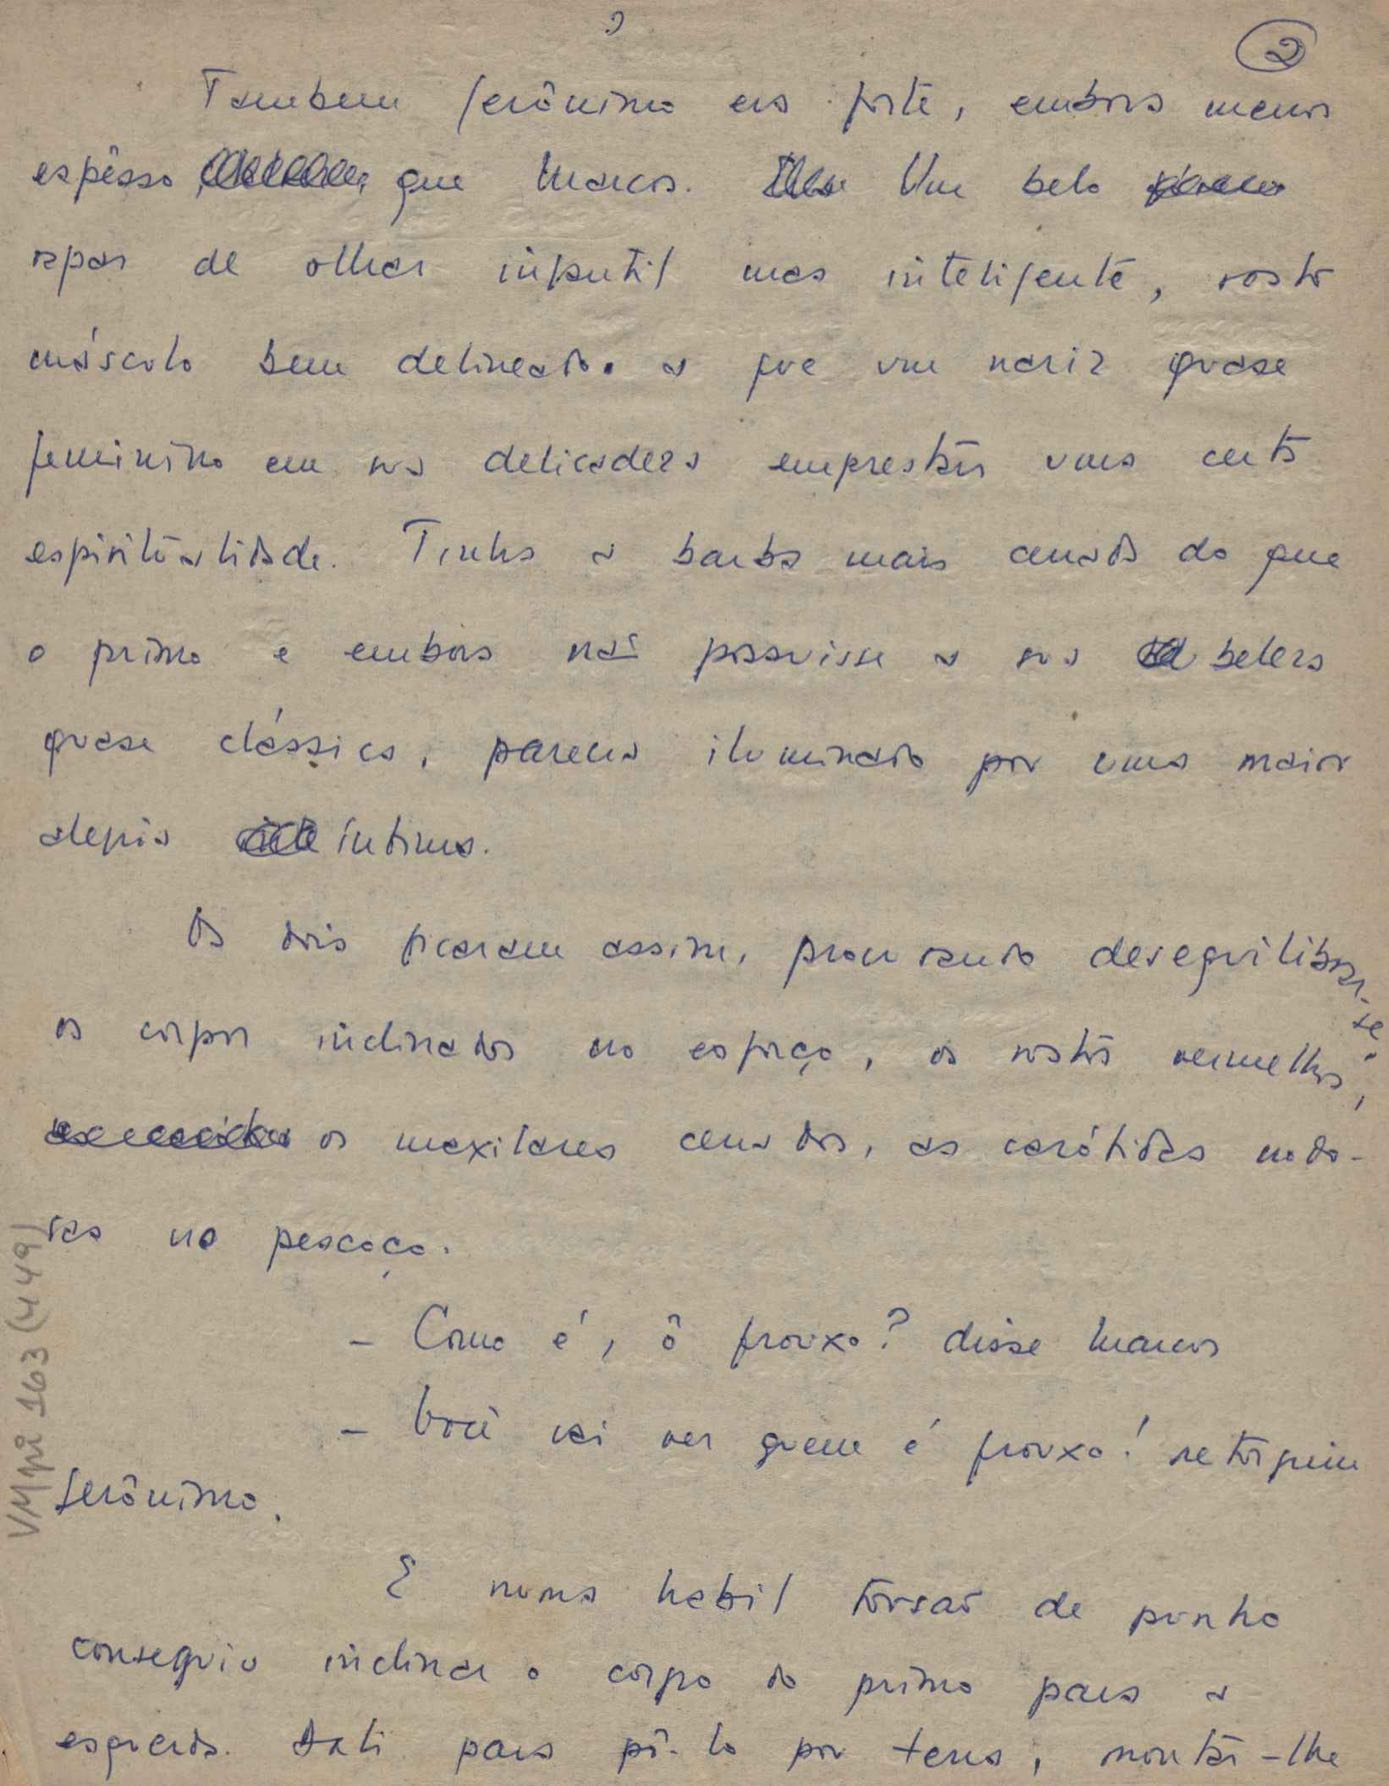 2
Tambem Jerônimo era forte, embora menos
espêsso que Marcos. Um belo
rapaz de olhar infantil mas inteligente, rosto
másculo bem delineado. a que um nariz quase
feminino em sua delicadeza emprestava uma certa
espiritualidade. Tinha a barba mais cerrada do que
o primo e embora não possuisse a sua beleza
quase clássica, parecia iluminado por uma maior
alegria íntima.
Os dois ficaram assim, procurando desequilibrar-se,
os corpos inclinados no esforço, os rostos vermelhos,
os maxilares cerrados, as carótidas nodo-
sas no pescoço.
- Como é, ô frouxo? disse Marcos
- Você vai ver quem é frouxo! retorquiu
Jerônimo.
E numa habil torsão de punho
conseguiu inclinar o corpo do primo para a
esquerda. Dali para pô-lo por terra, montar-lhe
VMpi 163 (449)